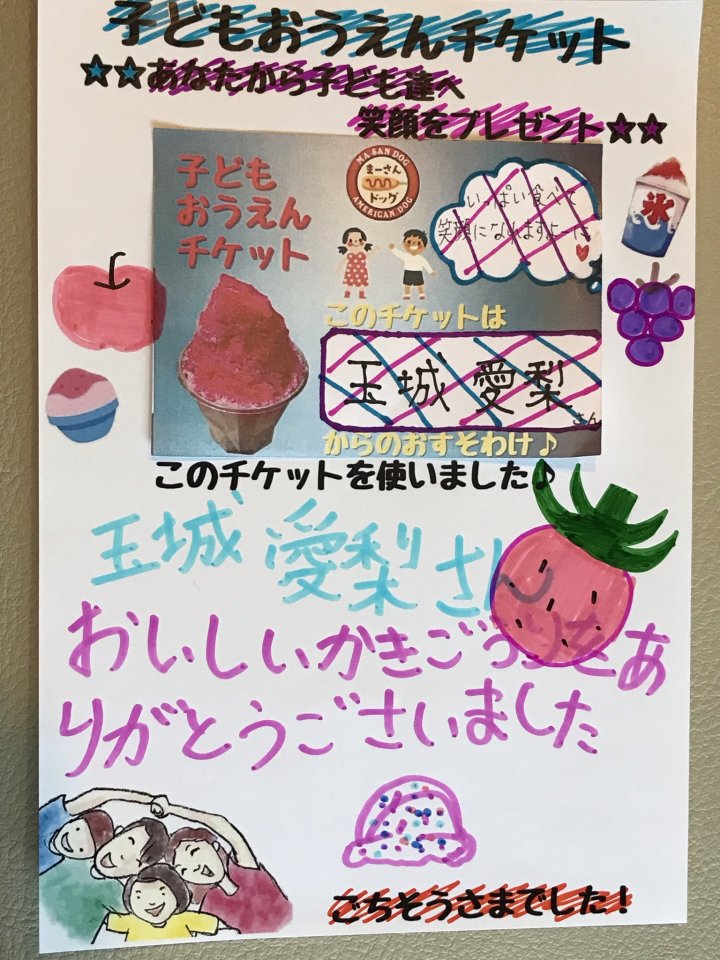 子どもおうえんチケット
★★あなたから子ども達へ
笑顔をプレゼント★★
子ども
おうえん
チケット
MA SAN DOG
まーさん
ドッグ
AMERICAN DOG
いっぱい食べて
笑顔になれますよーに
氷
このチケットは
玉城 愛梨さん
からのおすそわけ♪
このチケットを使いました♪
玉城 愛梨さん
おいしいかきごうりをあ
りがとうございました
ごちそうさまでした!